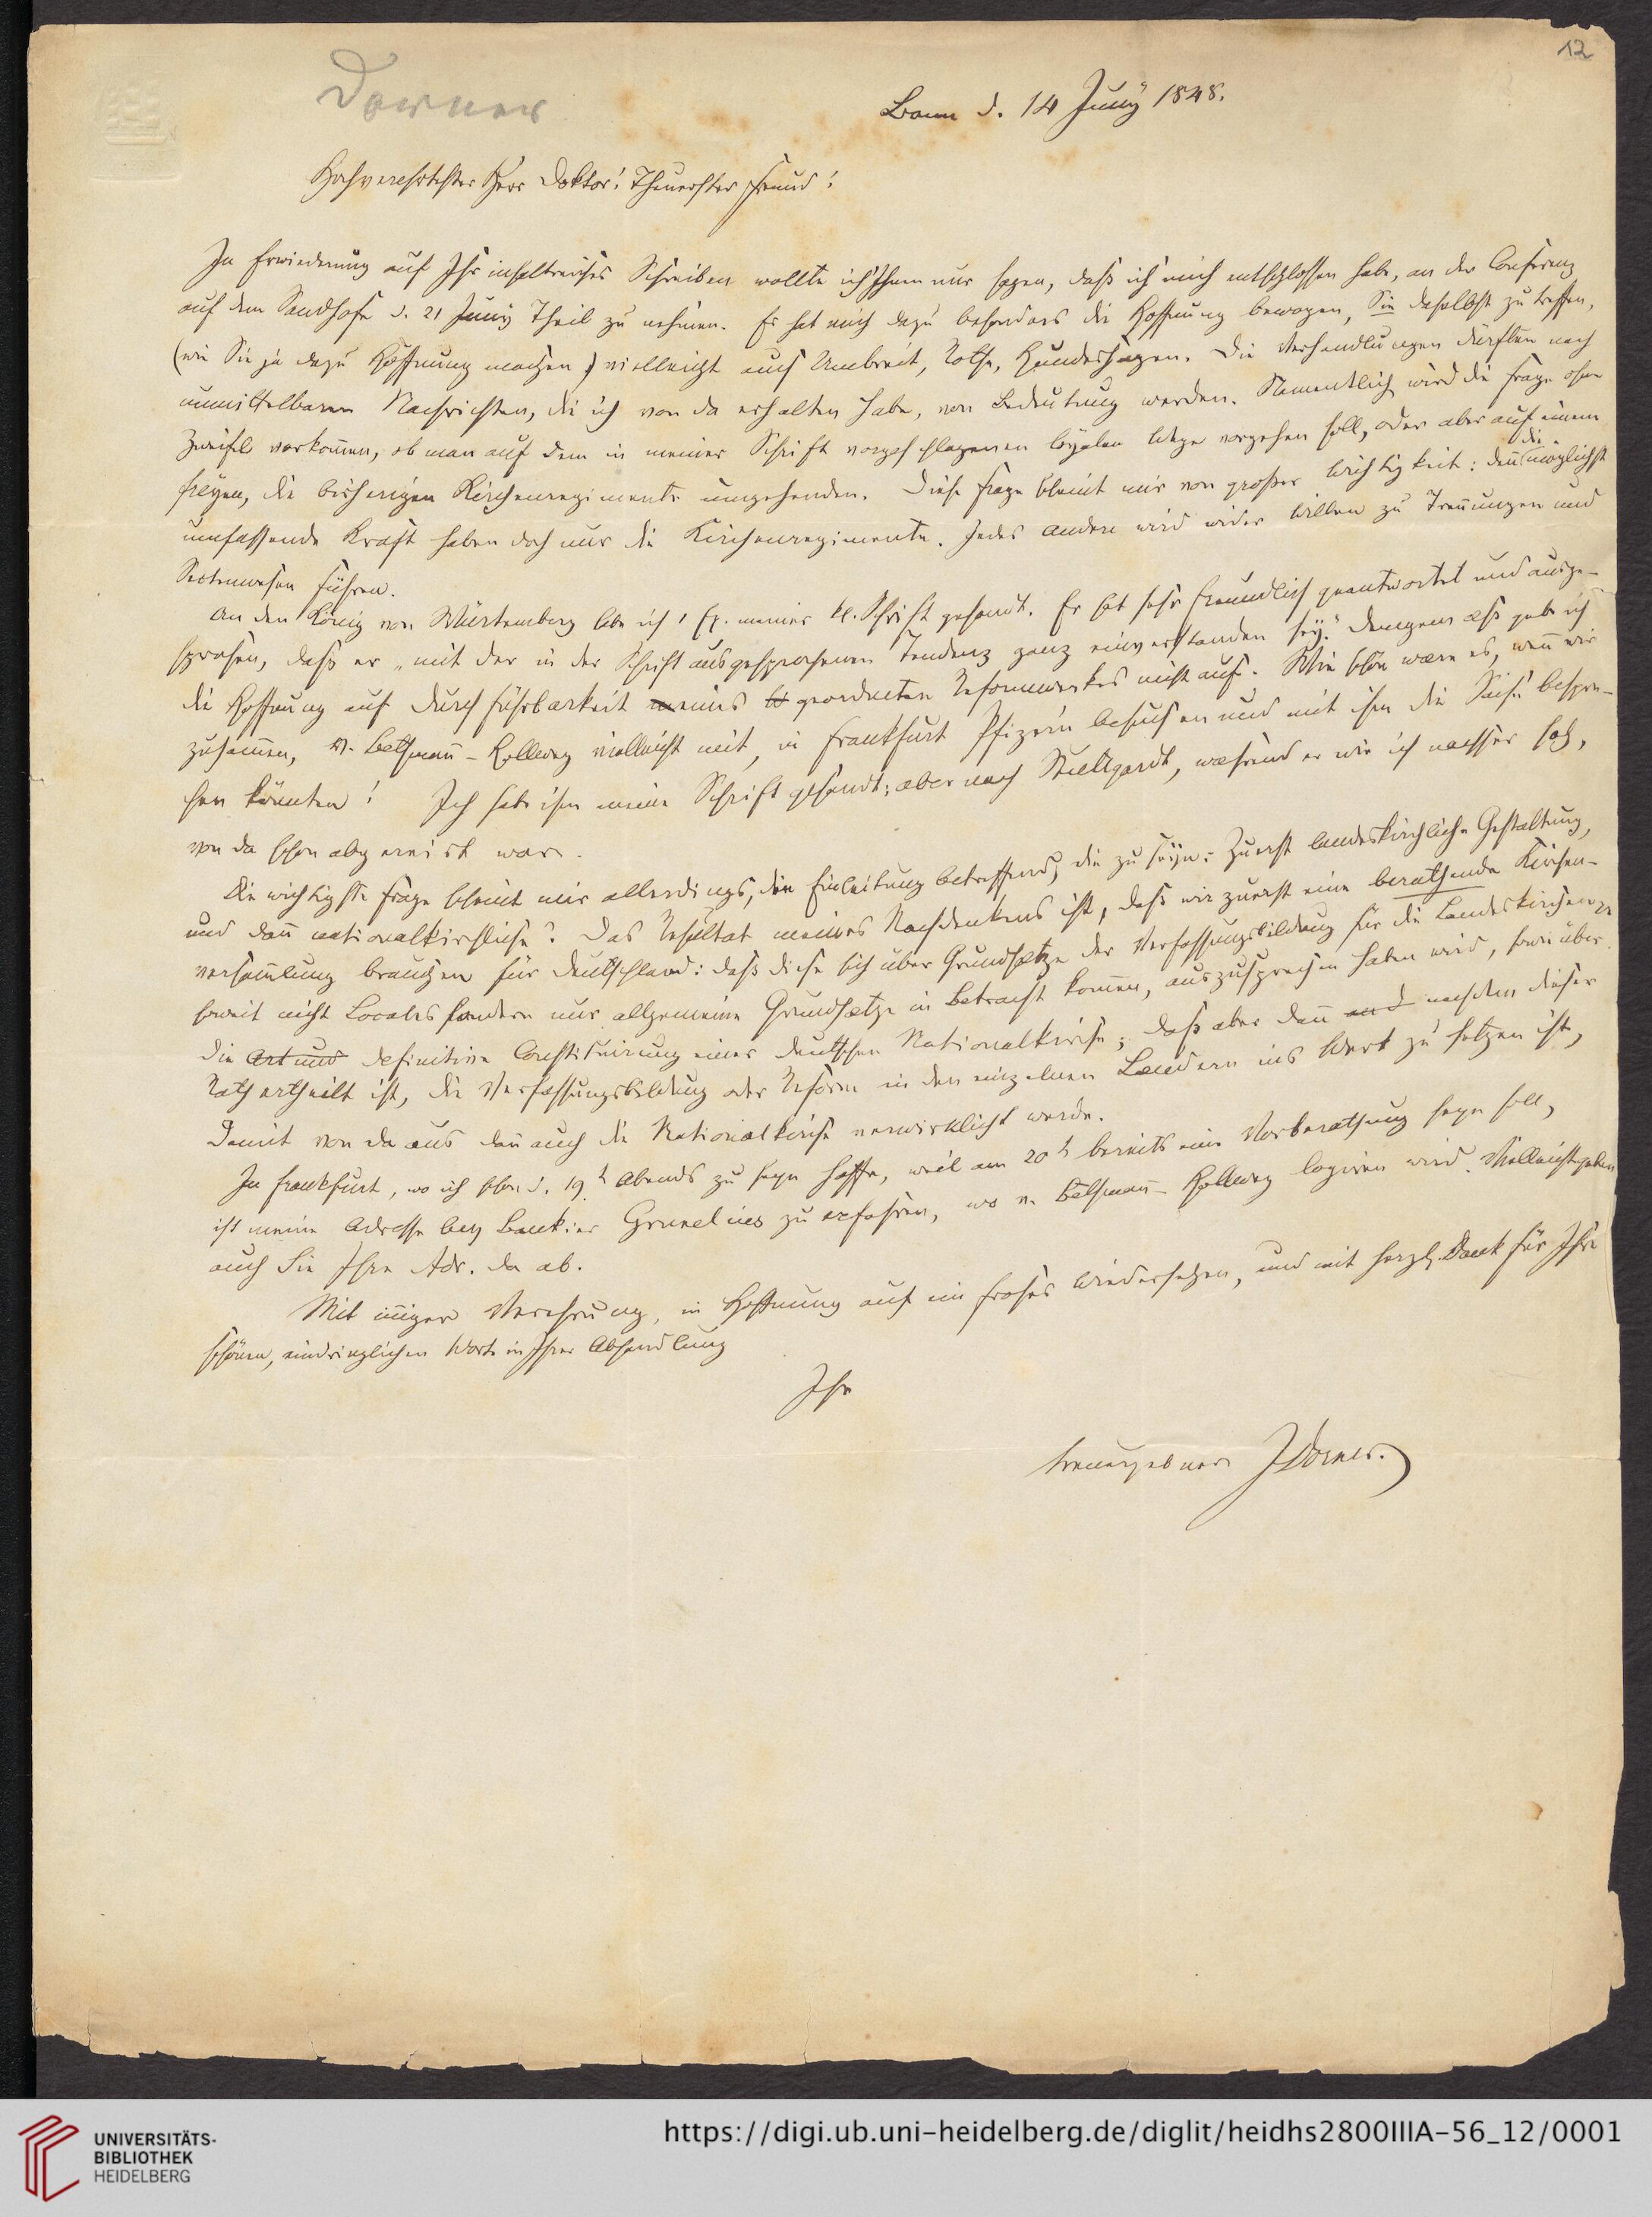 12
Dorner
Bonn d. 14 Juny 1848.
Hochverehrtester Herr Doktor! Theuerster Freund!
In Erwiederung auf Ihr inhaltreiches Schreiben wollte ich Ihnen nur sagen, daß ich mich entschlossen habe, an der Conferenz
auf dem Sandhofe d. 21 Juny Theil zu nehmen. Es hat mich dazu besonders die Hoffnung bewogen, Sie daselbst zu treffen,
(wie Sie ja dazu Hoffnung machen) vielleicht auch Umbreit, Rothe, Hundeshagen. Die Verhandlungen dürften nach
unmittelbaren Nachrichten, die ich von da erhalten habe, von Bedeutung werden. Namentlich wird die Frage ohne
Zweifel vorkom̅en, ob man auf dem in meiner Schrift vorgeschlagenen loyalen Wege vorgehen soll, oder aber auf einem
freyen, die bisherigen Kirchenregimente umgehenden. Diese Frage scheint mir von großer Wichtigkeit: den̅ die möglichst
umfassende Kraft haben doch nur die Kirchenregimente. Jedes andere wird wider Willen zu Tren̅ungen und
Sectenwesen führen.
An den König von Würtemberg habe ich 1 Ex. meiner kl. Schrift gesandt. Er hat sehr freundlich geantwortet und ausge-
sprochen, daß er „mit der in der Schrift ausgesprochenen Tendenz ganz einverstanden sey." Demgemäß gebe ich
die Hoffnung auf Durchführbarkeit eines geordneten Reformwerkes nicht auf. Wie schön wäre es, wen̅ wir
zusam̅en, v. Bethman̅-Hollweg vielleicht mit, in Frankfurt Pfizern besuchen und mit ihm die Sache bespre-
chen könnten! Ich habe ihm meine Schrift gesandt; aber nach Stuttgardt, während er wie ich nachher sah,
von da schon abgereist war.
Die wichtigste Frage scheint mir allerdings, die Einleitung betreffend, die zu seyn: Zuerst landeskirchliche Gestaltung,
und dan̅ nationalkirchliche? Das Resultat meines Nachdenkens ist, daß wir zuerst eine berathende Kirchen-
versam̅lung brauchen für Deutschland: daß diese sich über Grundsätze der Verfassungsbildung für die Landeskirchen,
soweit nicht Locales sondern nur allgemeine Grundsätze in Betracht kom̅en, auszusprechen haben wird, sowie über
die Art und definitive Constituirung einer deutschen Nationalkirche; daß aber dan̅ und nachdem dieser
Rath ertheilt ist, die Verfassungsbildung oder Reform in den einzelnen Ländern ins Werk zu setzen ist,
damit von da aus dan̅ auch die Nationalkirche verwirklicht werde.
In Frankfurt, wo ich schon d. 19t Abends zu seyn hoffe, weil am 20t bereits eine Vorberathung seyn soll,
ist meine Adresse bey Bankier Grunelius zu erfahren, wo v. Bethman̅-Hollweg logiren wird. Vielleicht geben
auch Sie Ihre Adr. da ab.
Mit in̅iger Verehrung, in Hoffnung auf ein frohes Wiedersehen, und mit herzl. Dank für Ihre
schönen, eindringlichen Worte in Ihrer Abhandlung
Ihr
treuergebner JDorner.
UNIVERSITÄTS-
BIBLIOTHEK
HEIDELBERG
https://digi.ub.uni-heidelberg.de/diglit/heidhs2800IIIA-56_12/0001